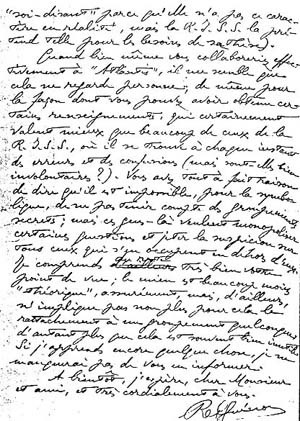 "soi-disant" parce qu'elle n'a pas ce carac-
tère en réalité, mais la R.I.S.S. la pré-
tend telle pour les besoins de sa thèse).
Quand bien même vous collaboreriez effec-
tivement à "Atlantis", il me semble que
cela ne regarde personne; de même pour
la façon dont vous pouvez avoir obtenu cer-
tains renseignements, qui certainement
valent mieux que beaucoup de ceux de la
R.I.S.S., où il se trouve à chaque instant
des erreurs et des confusions (mais sont-elles bien
involontaires ?). Vous avez tout à fait raison
de dire qu'il est impossible, pour la symbo-
lique, de ne pas tenir compte des groupements
secrets; mais ces gens-là veulent monopoliser
certaines questions et jeter la suspicion sur
tous ceux qui s'en occupent en dehors d'eux.
Je comprends d'ailleurs très bien votre
point de vue; le mien est beaucoup moins
"théorique", assurément, mais, d'ailleurs,
n'implique pas non plus pour cela le
rattachement à un groupement quelconque,
d'autant plus que cela est souvent bien inutile.
Si j'apprends encore quelque chose, je ne
manquerai pas de vous en informer.
A bientôt, j'espère, cher Monsieur
et ami, et très cordialement à vous.
René Guénon